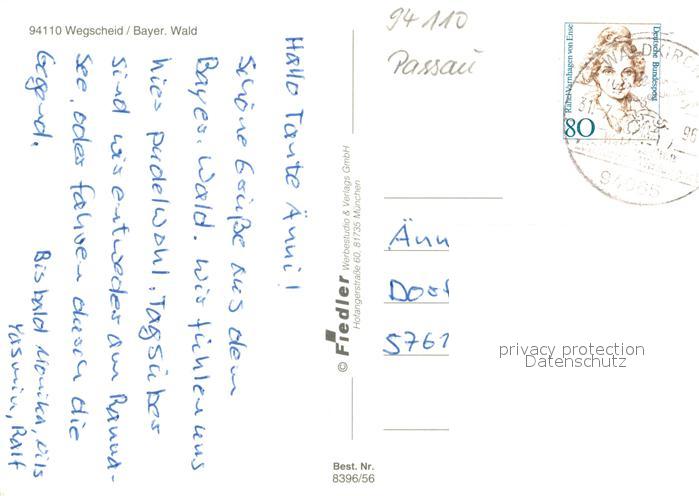 94110 Wegscheid / Bayer. Wald
Hallo Tante Änni!
Schöne Grüße aus dem
Bayer. Wald. Wir fühlen uns
hier pudelwohl. Tagsüber
sind wir entweder am Rannasee,
oder fahren durch die
Gegend.
Bis bald Monika, Nils
Yasmin, Ralf
© Fiedler Werbestudio & Verlags GmbH
Hofangerstraße 60, 81735 München
Best. Nr.
8396/56
94110
Passau
Rahel Varnhagen von Ense
Deutsche Bundespost
80
WALDKIRCH
Änn
Dorf
5761
privacy protection
Datenschutz